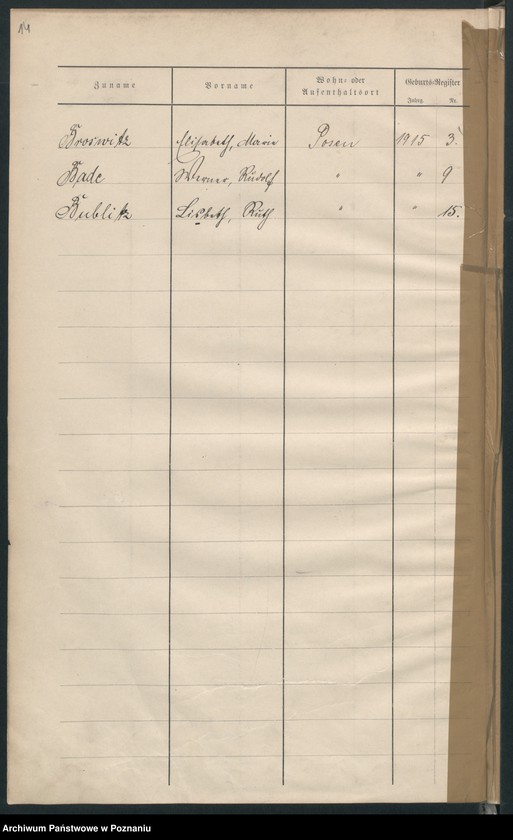 14
Zuname Vorname Wohn- oder Aufenthaltsort Geburts-Register
Jahrg. Nr.
Broswitz Elisabeth, Marie Posen 1915 3.
Bade Werner, Rudolf " " 9
Bublitz Lisbeth, Ruth " " 15.
Archiwum Państwowe w Poznaniu